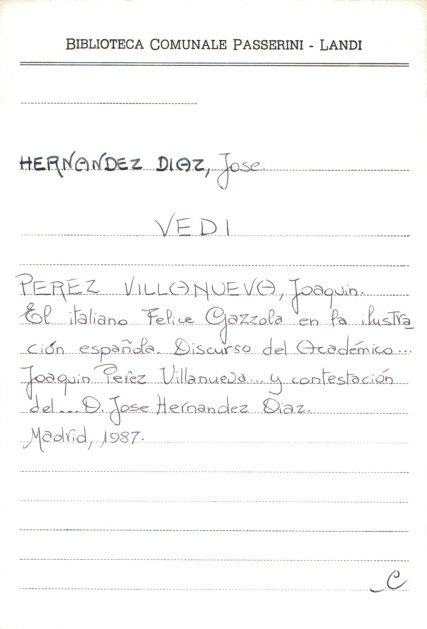 BIBLIOTECA COMUNALE PASSERINI - LANDI
HERNANDEZ DIAZ, Jose.
VEDI
PEREZ VILLANUEVA, Joaquin.
El italiano Felice Gazzola en la ilustra
ción española. Discurso del Académico...
Joaquin Perez Villanueva... y contestación
del... D. Jose Hernandez Diaz.
Madrid, 1987.
C